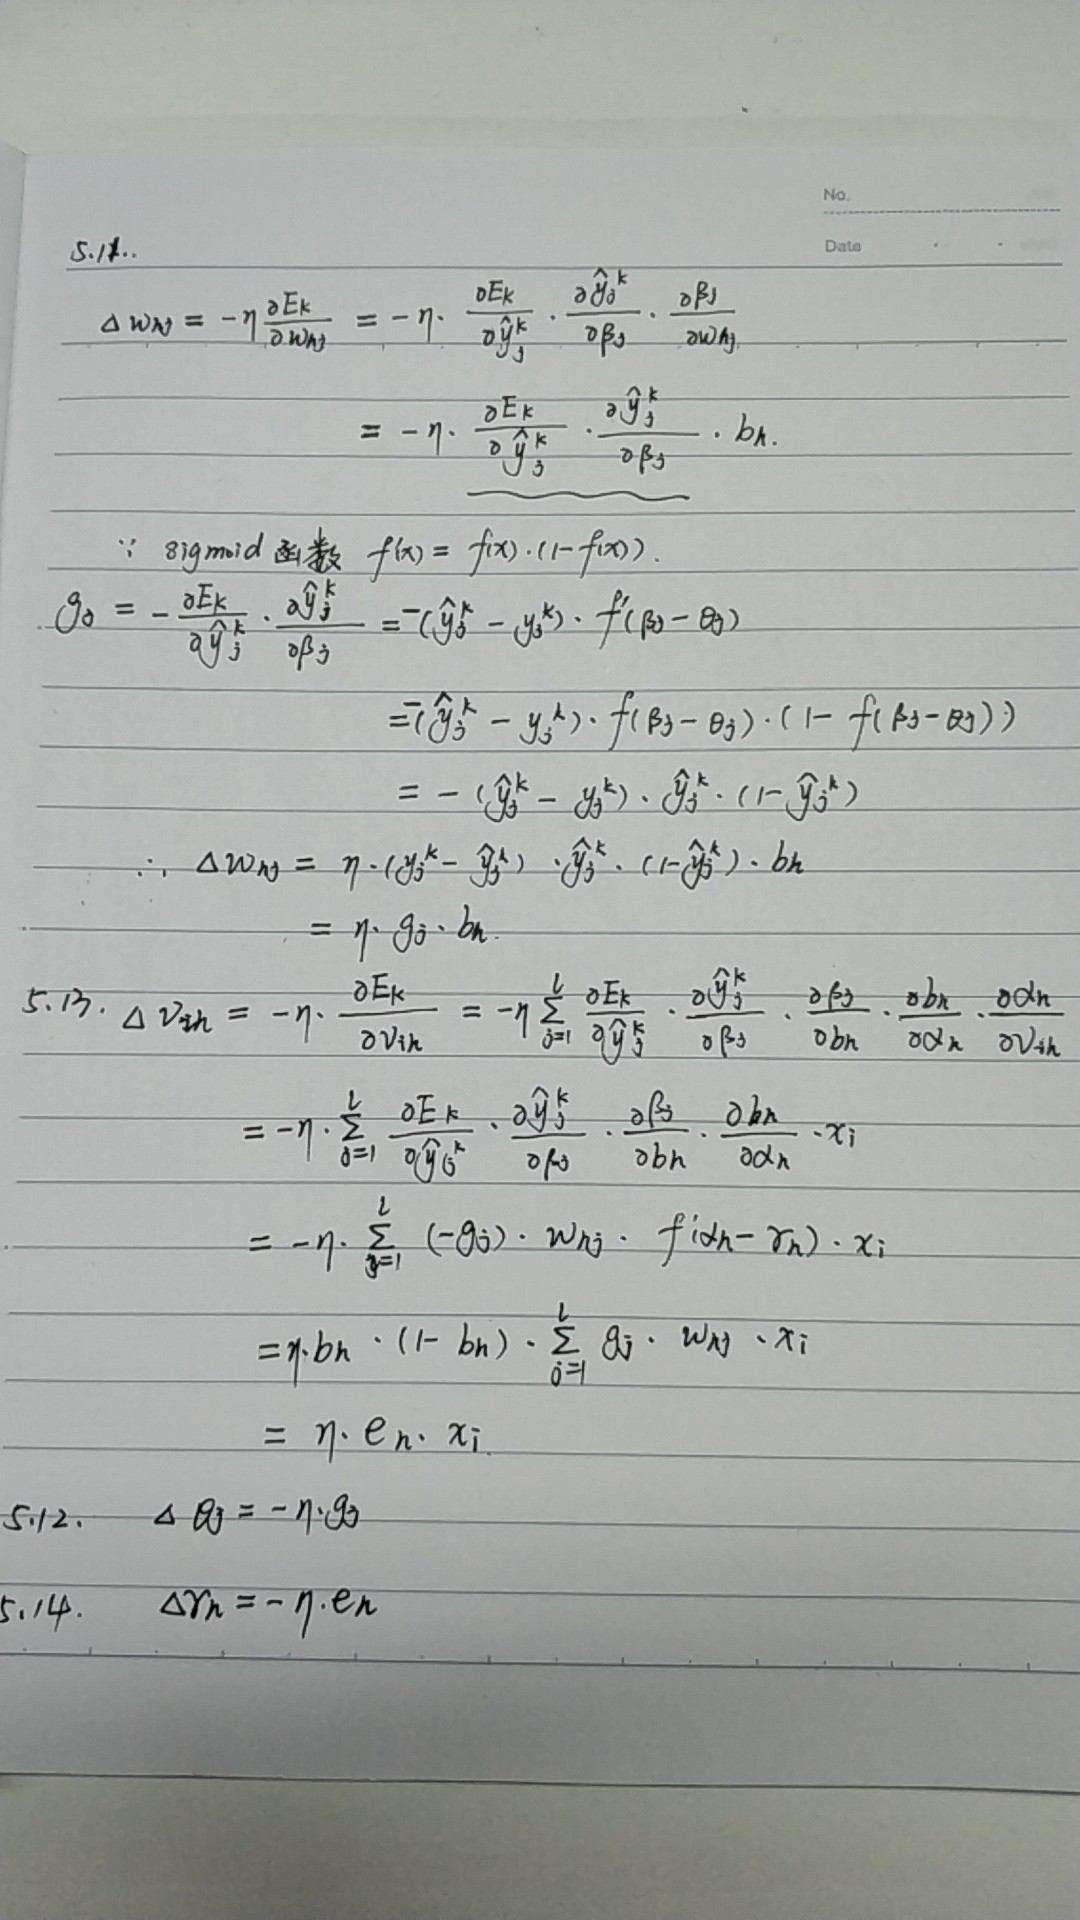 No.
Date
5.11..
Δw_hj = -η ∂E_k/∂w_hj = -η · ∂E_k/∂ŷ_j^k · ∂ŷ_j^k/∂β_j · ∂β_j/∂w_hj
= -η · ∂E_k/∂ŷ_j^k · ∂ŷ_j^k/∂β_j · b_h.
∵ sigmoid 函数 f'(x) = f(x)·(1-f(x)).
g_j = -∂E_k/∂ŷ_j^k · ∂ŷ_j^k/∂β_j = -(ŷ_j^k - y_j^k) · f'(β_j - θ_j)
= -(ŷ_j^k - y_j^k) · f(β_j - θ_j) · (1 - f(β_j - θ_j))
= -(ŷ_j^k - y_j^k) · ŷ_j^k · (1 - ŷ_j^k)
∴ Δw_hj = η·(y_j^k - ŷ_j^k) · ŷ_j^k · (1-ŷ_j^k) · b_h
= η · g_j · b_h.
5.13. Δv_ih = -η · ∂E_k/∂v_ih = -η Σ_{j=1}^l ∂E_k/∂ŷ_j^k · ∂ŷ_j^k/∂β_j · ∂β_j/∂b_h · ∂b_h/∂α_h · ∂α_h/∂v_ih
= -η · Σ_{j=1}^l ∂E_k/∂ŷ_j^k · ∂ŷ_j^k/∂β_j · ∂β_j/∂b_h · ∂b_h/∂α_h · x_i
= -η · Σ_{j=1}^l (-g_j) · w_hj · f'(α_h - γ_h) · x_i
= η·b_h · (1 - b_h) · Σ_{j=1}^l g_j · w_hj · x_i
= η · e_h · x_i.
5.12. Δθ_j = -η·g_j
5.14. Δγ_h = -η·e_h